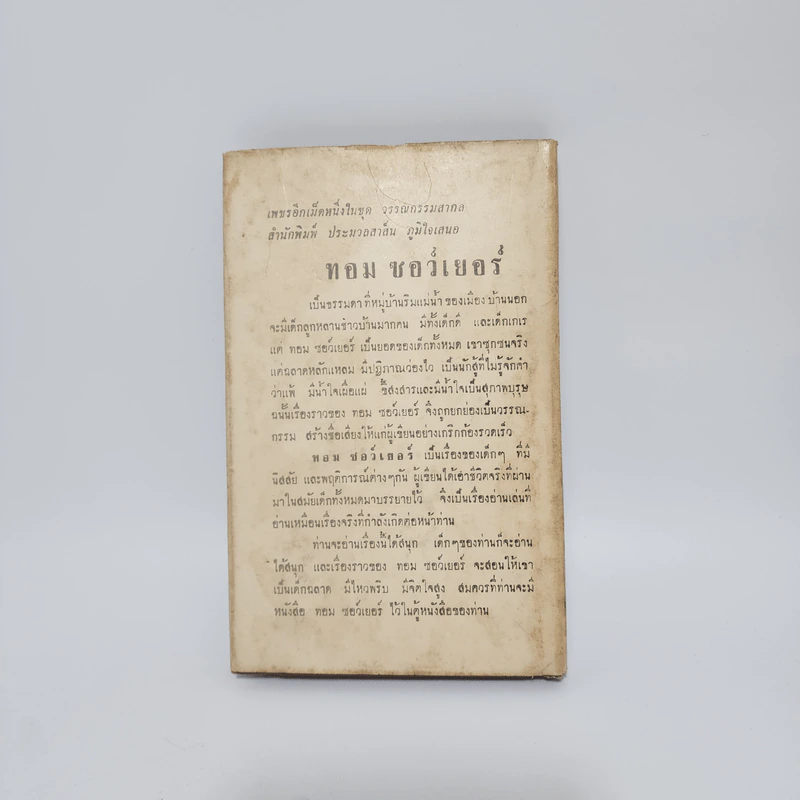 เพชรอีกเม็ดหนึ่งในชุด วรรณกรรมสากล
สำนักพิมพ์ ประมวลสาส์น ภูมิใจเสนอ
ทอม ซอว์เยอร์
เป็นธรรมดา ที่หมู่บ้านริมแม่น้ำ ของเมือง บ้านนอก
จะมีเด็กลูกหลานชาวบ้านมากคน มีทั้งเด็กดี และเด็กเกเร
แต่ ทอม ซอว์เยอร์ เป็นยอดของเด็กทั้งหมด เขาซุกซนจริง
แต่ฉลาดหลักแหลม มีปฏิภาณว่องไว เป็นนักสู้ที่ไม่รู้จักคำ
ว่าแพ้ มีน้ำใจเผื่อแผ่ ขี้สงสารและมีน้ำใจเป็นสุภาพบุรุษ
ฉนั้นเรื่องราวของ ทอม ซอว์เยอร์ จึงถูกยกย่องเป็นวรรณ-
กรรม สร้างชื่อเสียงให้แก่ผู้เขียนอย่างเกริกก้องรวดเร็ว
ทอม ซอว์เยอร์ เป็นเรื่องของเด็กๆ ที่มี
นิสสัย และพฤติการณ์ต่างๆกัน ผู้เขียนได้เอาชีวิตจริงที่ผ่าน
มาในสมัยเด็กทั้งหมดมาบรรยายไว้ จึงเป็นเรื่องอ่านเล่นที่
อ่านเหมือนเรื่องจริงที่กำลังเกิดต่อหน้าท่าน
ท่านจะอ่านเรื่องนี้ได้สนุก เด็กๆของท่านก็จะอ่าน
ได้สนุก และเรื่องราวของ ทอม ซอว์เยอร์ จะสอนให้เขา
เป็นเด็กฉลาด มีไหวพริบ มีจิตใจสูง สมควรที่ท่านจะมี
หนังสือ ทอม ซอว์เยอร์ ไว้ในตู้หนังสือของท่าน